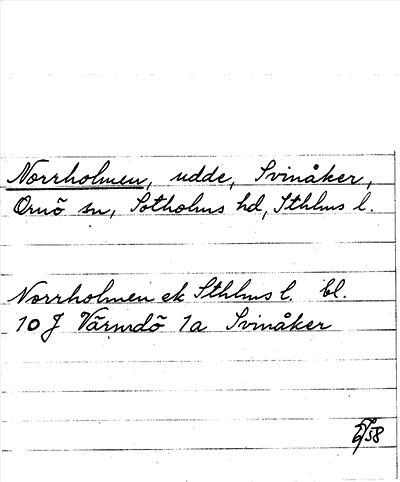 Norrholmen, udde, Svinåker,
Ornö sn, Sotholms hd, Sthlms l.
Norrholmen ek Sthlms l. bl.
10 J Värmdö 1a Svinåker